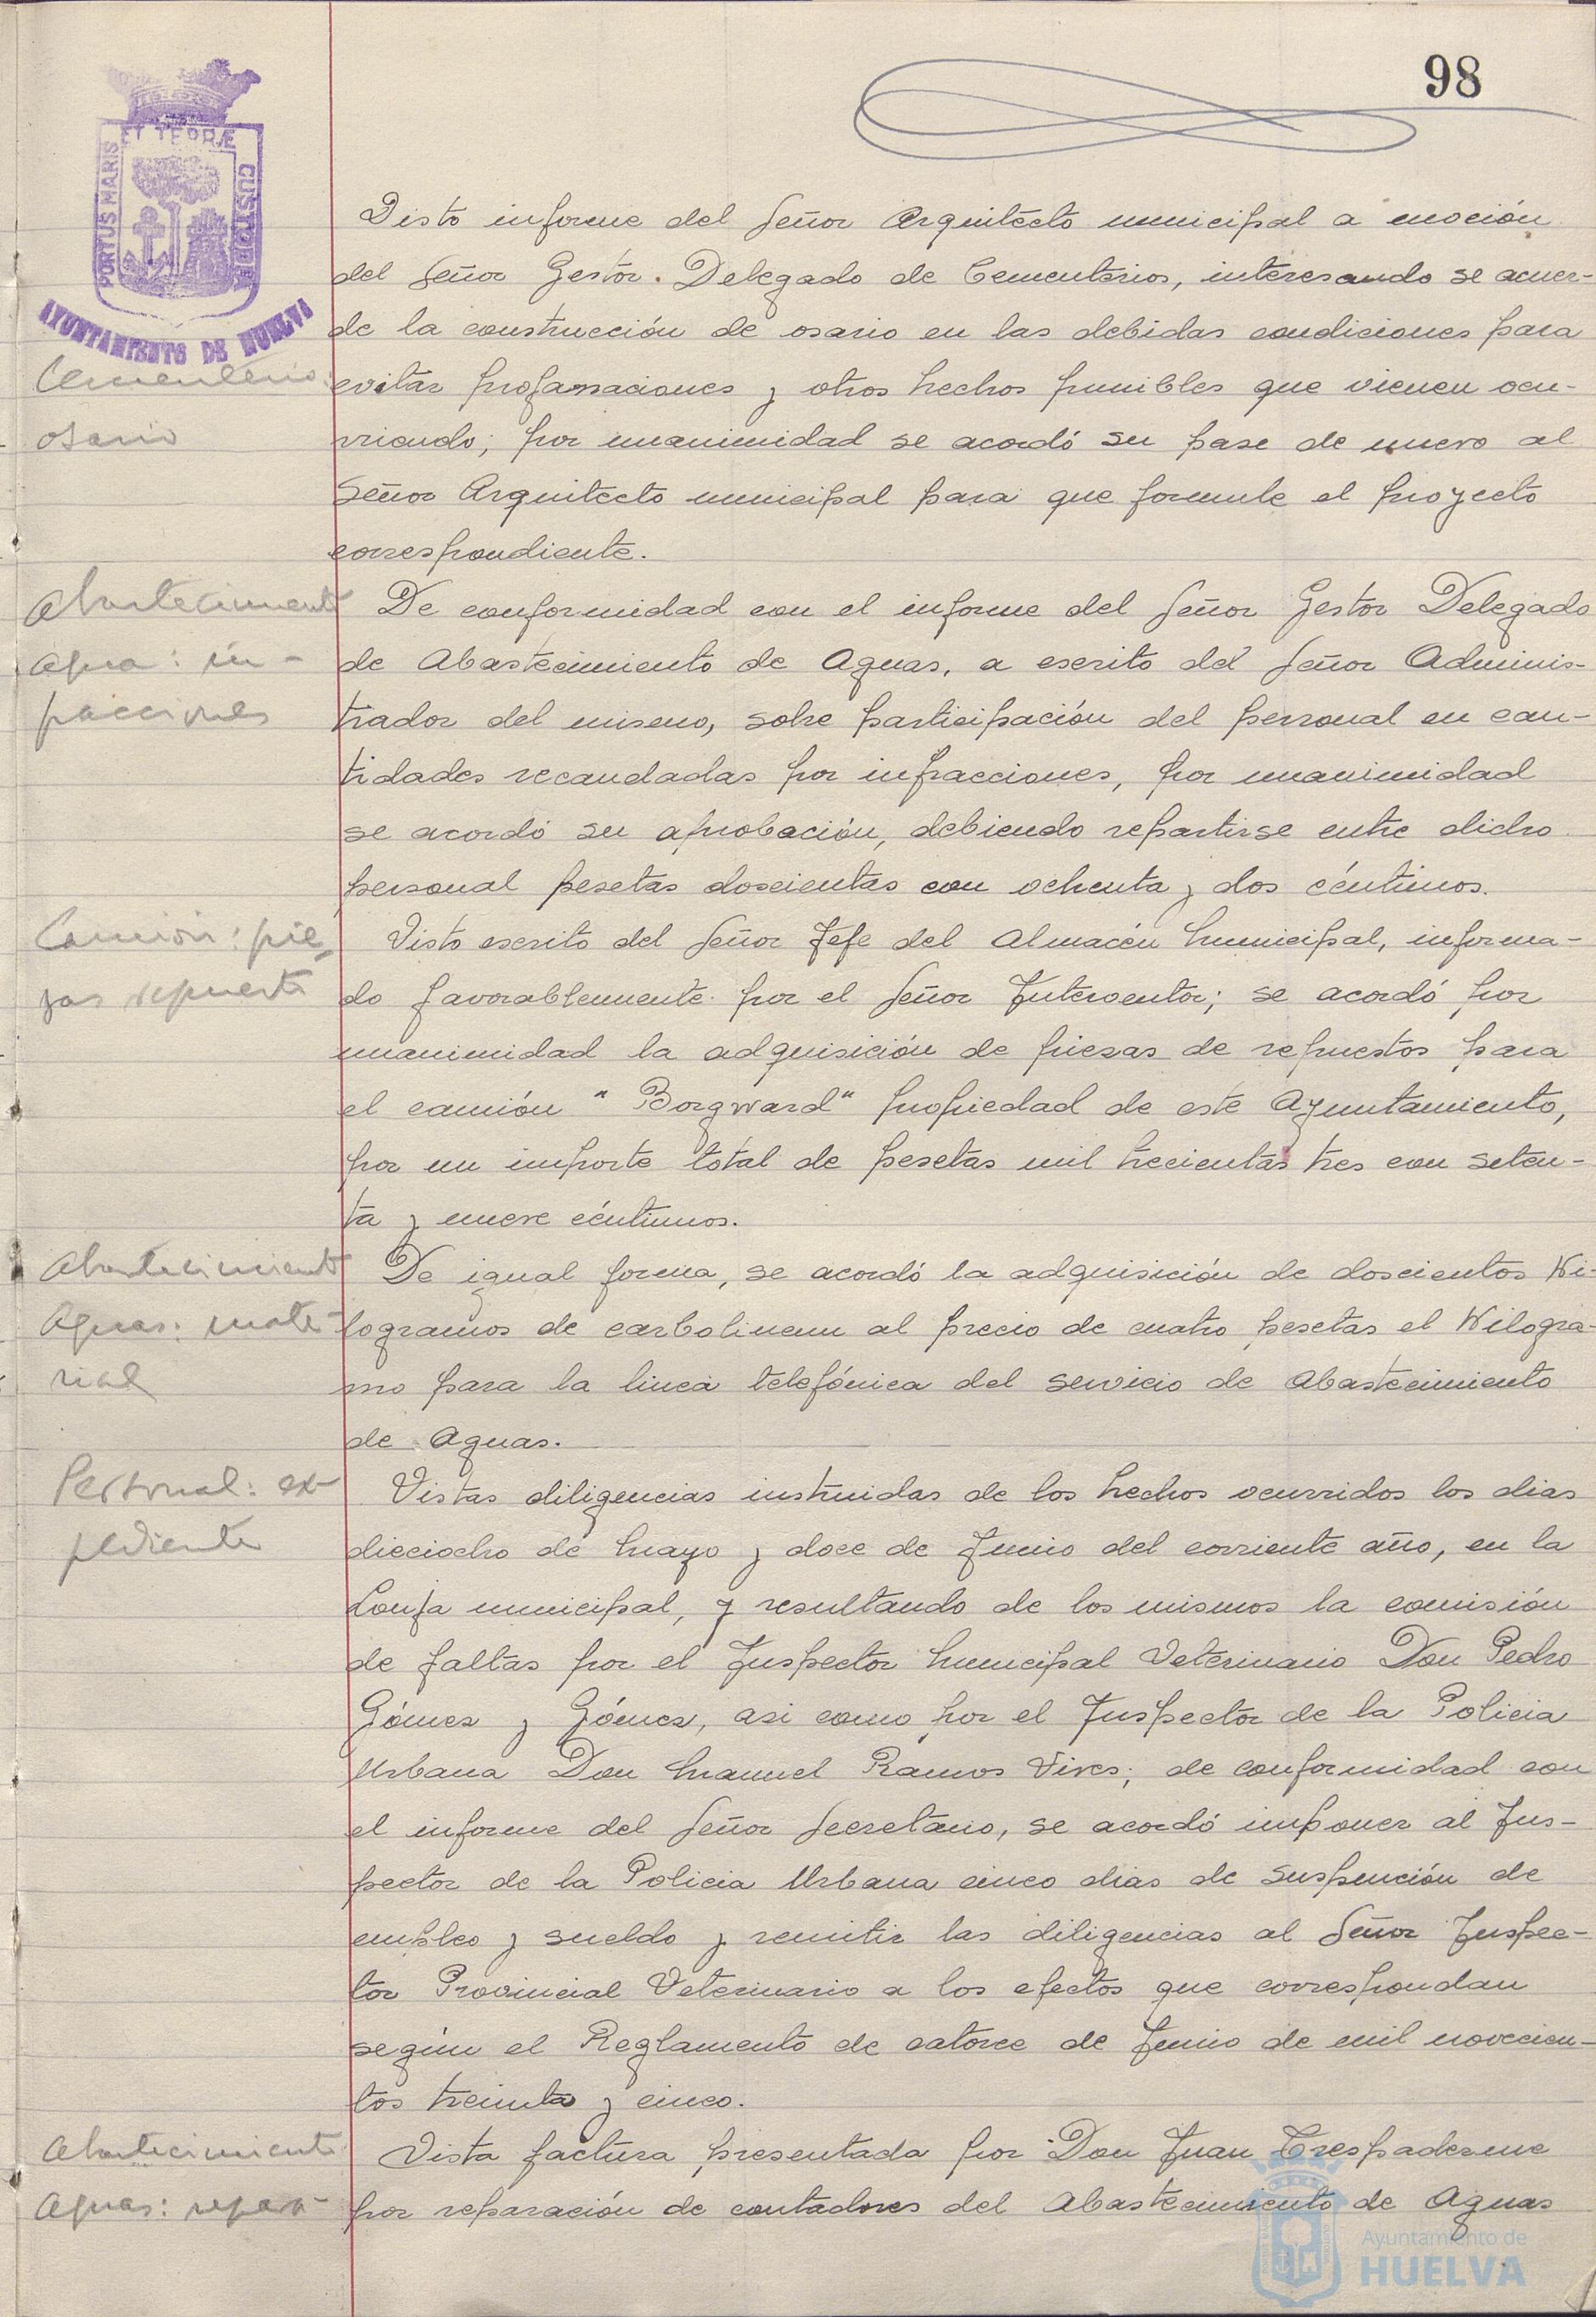 98
PORTUS MARIS
ET TERRÆ
CUSTODIA
AYUNTAMIENTO DE HUELVA
Visto informe del Señor Arquitecto municipal a moción
del Señor Gestor. Delegado de Cementerios, interesando se acuer-
de la construcción de osario en las debidas condiciones para
Cementerio:
evitar profanaciones y otros hechos punibles que vienen ocu-
osario
rriendo; por unanimidad se acordó su pase de nuevo al
Señor Arquitecto municipal para que formule el proyecto
correspondiente.
Abastecimiento
De conformidad con el informe del Señor Gestor Delegado
Agua: in-
de Abastecimiento de Aguas, a escrito del Señor Adminis-
fracciones
trador del mismo, sobre participación del personal en can-
tidades recaudadas por infracciones, por unanimidad
se acordó su aprobación, debiendo repartirse entre dicho
personal pesetas doscientas con ochenta y dos céntimos.
Camión: pie-
Visto escrito del Señor Jefe del Almacén Municipal, informa-
zas repuesto
do favorablemente por el Señor Interventor; se acordó por
unanimidad la adquisición de piezas de repuestos para
el camión "Borgward" propiedad de este Ayuntamiento,
por un importe total de pesetas mil trecientas tres con seten-
ta y nueve céntimos.
Abastecimiento
De igual forma, se acordó la adquisición de doscientos Ki-
Aguas: mate-
logramos de carbolineun al precio de cuatro pesetas el Kilogra-
rial
mo para la linea telefónica del servicio de Abastecimiento
de Aguas.
Personal: ex-
Vistas diligencias instruidas de los hechos ocurridos los dias
pediente
dieciocho de Mayo y doce de Junio del corriente año, en la
Lonja municipal, y resultando de los mismos la comisión
de faltas por el Inspector Municipal Veterinario Don Pedro
Gómez y Gómez, asi como por el Inspector de la Policia
Urbana Don Manuel Ramos Vives; de conformidad con
el informe del Señor Secretario, se acordó imponer al Ins-
pector de la Policia Urbana cinco dias de suspención de
empleo y sueldo y remitir las diligencias al Señor Inspec-
tor Provincial Veterinario a los efectos que correspondan
según el Reglamento de catorce de Junio de mil novecien-
tos treinta y cinco.
Abastecimiento
Vista factura presentada por Don Juan Trespaderme
Aguas: repara-
por reparación de contadores del Abastecimiento de Aguas
Ayuntamiento de
HUELVA